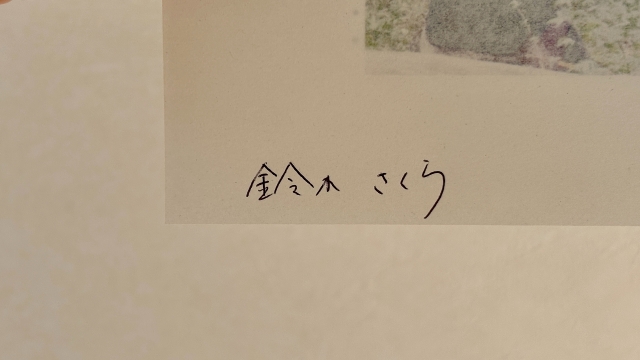 鈴木 さくら